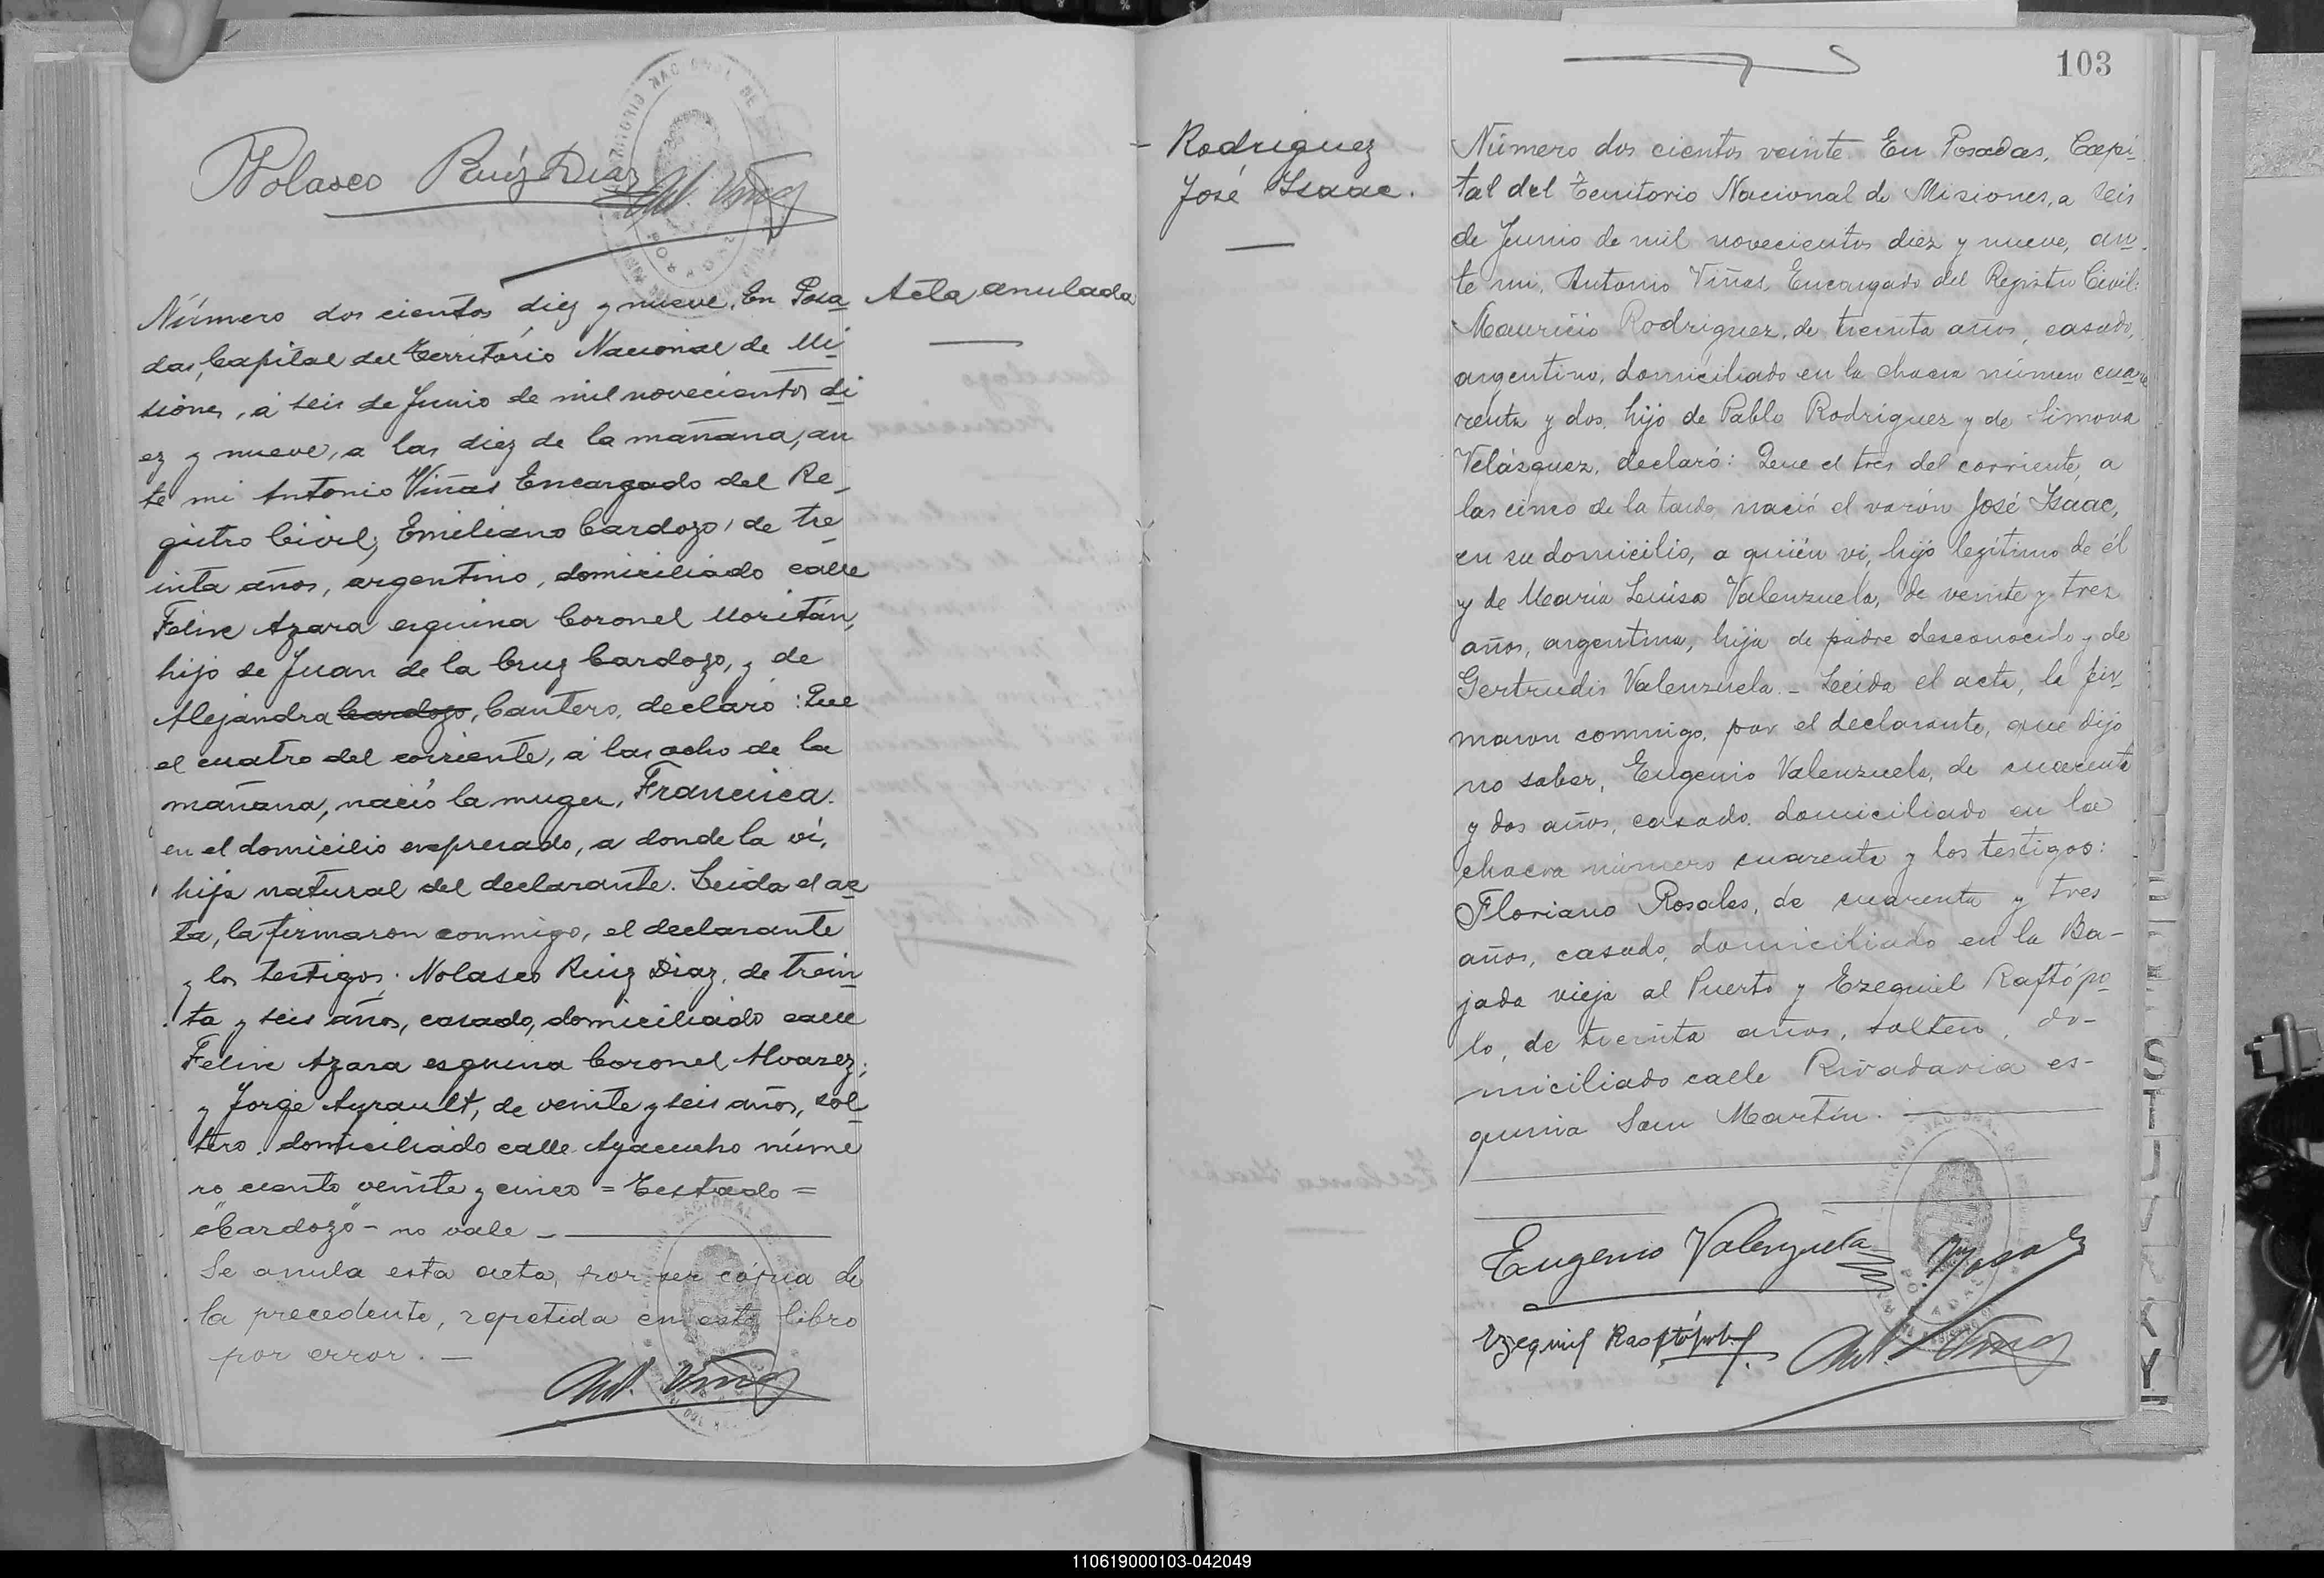 Nolasco Ruíz Diaz
Ant. Viñas
Número dos cientos diez y nueve. En Posa
das, Capital del Territorio Nacional de Mi
siones, á seis de Junio de mil novecientos di
ez y nueve, a las diez de la mañana, an
te mi Antonio Viñas Encargado del Re_
gistro Civil; Emiliano Cardozo, de tre
inta años, argentino, domiciliado calle
Felix Azara esquina Coronel Moritán,
hijo de Juan de la Cruz Cardozo, y de
Alejandra Cardozo, Cantero, declaró: Que
el cuatro del corriente, á las ocho de la
mañana, nació la muger, Francisca.
en el domicilio expresado, a donde la ví,
hija natural del declarante. Leida el ac
ta, la firmaron conmigo, el declarante
y los testigos: Nolasco Ruiz Diaz, de trein
ta y seis años, casado, domiciliado calle
Felix Azara esquina Coronel Alvarez;
y Jorge Ayrault, de veinte y seis años, sol
tero domiciliado calle Ayacucho núme
ro ciento veinte y cinco = Testado =
"Cardozo" - no vale -
Se anula esta acta, por ser copia de
la precedente, repetida en este libro
por error. -
Ant. Viñas
Acta anulada
103
Rodriguez
José Isaac.
Número dos cientos veinte. En Posadas, Capi-
tal del Territorio Nacional de Misiones, a seis
de Junio de mil novecientos diez y nueve, an
te mi, Antonio Viñas Encargado del Registro Civil:
Mauricio Rodriguez, de treinta años, casado,
argentino, domiciliado en la chacra número cua
renta y dos, hijo de Pablo Rodriguez y de Simona
Velásquez, declaró: Que el tres del corriente, a
las cinco de la tarde, nació el varón José Isaac,
en su domicilio, a quién vi, hijo legítimo de él
y de María Luisa Valenzuela, de veinte y tres
años, argentina, hija de padre desconocido y de
Gertrudis Valenzuela. - Leida el acta, la fir
maron conmigo, por el declarante, que dijo
no saber, Eugenio Valenzuela, de cuarenta
y dos años, casado, domiciliado en la
chacra número cuarenta y los testigos:
Floriano Rosales, de cuarenta y tres
años, casado, domiciliado en la Ba-
jada vieja al Puerto y Ezequiel Raftópo
lo, de treinta años, soltero, do-
miciliado calle Rivadavia es-
quina San Martín.
Eugenio Valenzuela
Ezequiel Raftópolo
Ant. Viñas
110619000103-042049